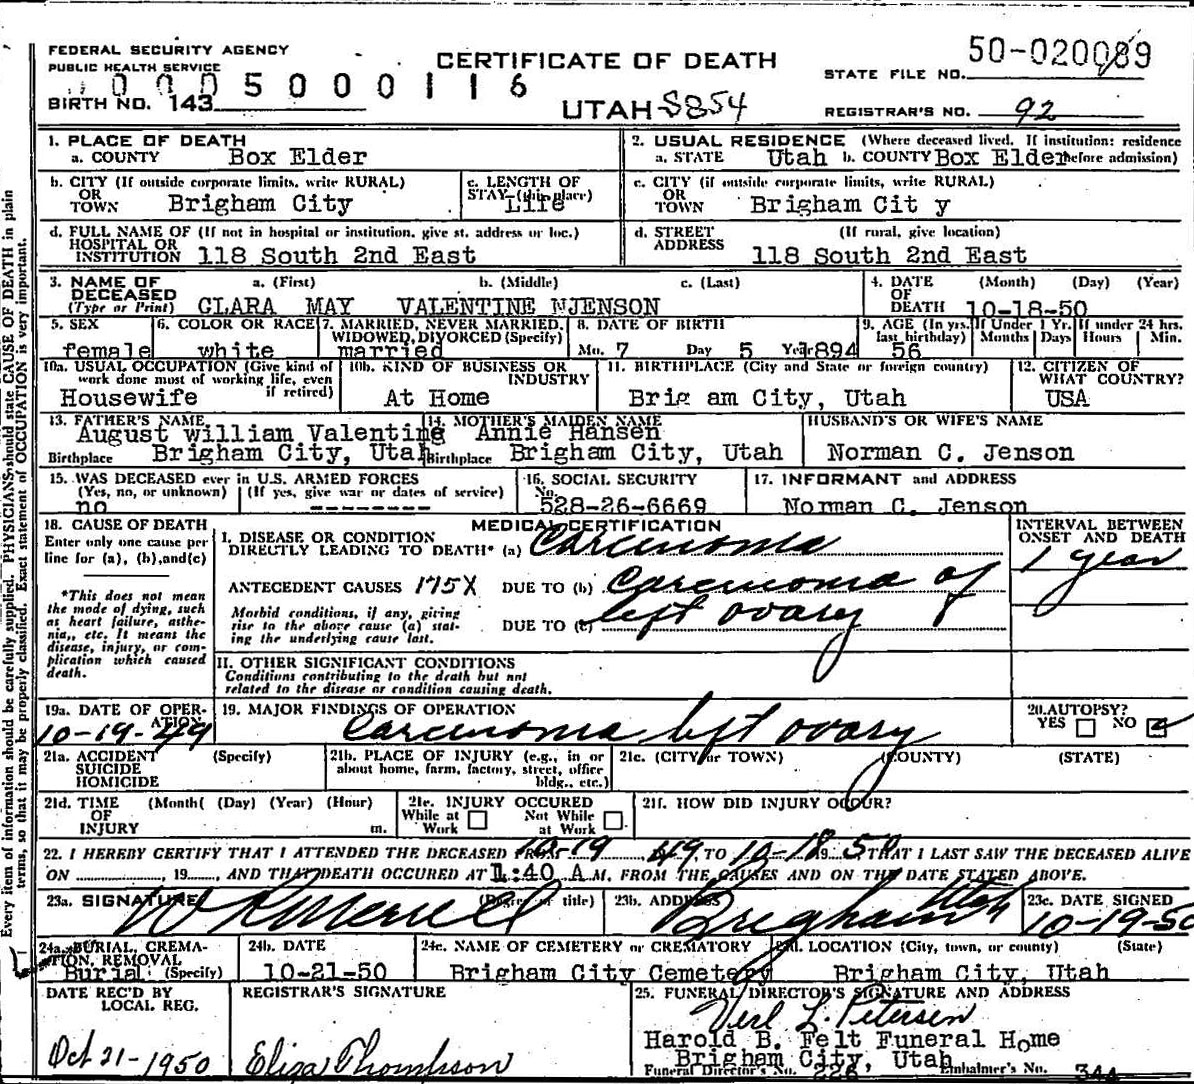 FEDERAL SECURITY AGENCY
PUBLIC HEALTH SERVICE
CERTIFICATE OF DEATH
STATE FILE NO. 50-020089
0005000116
BIRTH NO. 143
UTAH S854
REGISTRAR'S NO. 92
1. PLACE OF DEATH
a. COUNTY Box Elder
2. USUAL RESIDENCE (Where deceased lived. If institution: residence before admission)
a. STATE Utah b. COUNTY Box Elder
b. CITY (If outside corporate limits, write RURAL)
OR
TOWN Brigham City
c. LENGTH OF
STAY (this place)
Life
c. CITY (if outside corporate limits, write RURAL)
OR
TOWN Brigham Cit y
d. FULL NAME OF (If not in hospital or institution, give st. address or loc.)
HOSPITAL OR
INSTITUTION 118 South 2nd East
d. STREET (If rural, give location)
ADDRESS 118 South 2nd East
3. NAME OF a. (First) b. (Middle) c. (Last)
DECEASED
(Type or Print) CLARA MAY VALENTINE NJENSON
4. DATE (Month) (Day) (Year)
OF
DEATH 10-18-50
5. SEX
female
6. COLOR OR RACE
white
7. MARRIED, NEVER MARRIED,
WIDOWED, DIVORCED (Specify)
married
8. DATE OF BIRTH
Mo. 7 Day 5 Year 1894
9. AGE (In yrs. last birthday)
56
If Under 1 Yr.
Months Days
If under 24 hrs.
Hours Min.
10a. USUAL OCCUPATION (Give kind of
work done most of working life, even
if retired)
Housewife
10b. KIND OF BUSINESS OR
INDUSTRY
At Home
11. BIRTHPLACE (City and State or foreign country)
Brig am City, Utah
12. CITIZEN OF
WHAT COUNTRY?
USA
13. FATHER'S NAME
August william Valentine
Birthplace Brigham City, Utah
14. MOTHER'S MAIDEN NAME
Annie Hansen
Birthplace Brigham City, Utah
HUSBAND'S OR WIFE'S NAME
Norman C. Jenson
15. WAS DECEASED ever in U.S. ARMED FORCES
(Yes, no, or unknown) (If yes, give war or dates of service)
no --------
16. SOCIAL SECURITY
No.
528-26-6669
17. INFORMANT and ADDRESS
Norman C. Jenson
18. CAUSE OF DEATH
Enter only one cause per
line for (a), (b), and (c)
*This does not mean
the mode of dying, such
as heart failure, asthe-
nia,, etc. It means the
disease, injury, or com-
plication which caused
death.
MEDICAL CERTIFICATION
I. DISEASE OR CONDITION
DIRECTLY LEADING TO DEATH* (a) Carcinoma
ANTECEDENT CAUSES 175X DUE TO (b) Carcinoma of
Morbid conditions, if any, giving
rise to the above cause (a) stat-
ing the underlying cause last.
DUE TO (c) left ovary
INTERVAL BETWEEN
ONSET AND DEATH
1 year
II. OTHER SIGNIFICANT CONDITIONS
Conditions contributing to the death but not
related to the disease or condition causing death.
19a. DATE OF OPER-
ATION
10-19-49
19. MAJOR FINDINGS OF OPERATION
Carcinoma left ovary
20. AUTOPSY?
YES NO
21a. ACCIDENT (Specify)
SUICIDE
HOMICIDE
21b. PLACE OF INJURY (e.g., in or
about home, farm, factory, street, office
bldg., etc.)
21c. (CITY or TOWN) (COUNTY) (STATE)
21d. TIME (Month( (Day) (Year) (Hour)
OF
INJURY m.
21e. INJURY OCCURED
While at Work Not While at Work
21f. HOW DID INJURY OCCUR?
22. I HEREBY CERTIFY THAT I ATTENDED THE DECEASED FROM 10-19, 49, TO 10-18 1950 THAT I LAST SAW THE DECEASED ALIVE
ON , 19 , AND THAT DEATH OCCURED AT 1:40 A M, FROM THE CAUSES AND ON THE DATE STATED ABOVE.
23a. SIGNATURE (Degree or title)
W R Merrell
23b. ADDRESS
Brigham Utah
23c. DATE SIGNED
10-19-50
24a. BURIAL, CREMA-
TION, REMOVAL
Burial (Specify)
24b. DATE
10-21-50
24c. NAME OF CEMETERY or CREMATORY
Brigham City Cemetery
24d. LOCATION (City, town, or county) (State)
Brigham City, Utah
DATE REC'D BY
LOCAL REG.
Oct 21-1950
REGISTRAR'S SIGNATURE
Eliza Thompson
25. FUNERAL DIRECTOR'S SIGNATURE AND ADDRESS
Verl L. Petersen
Harold B. Felt Funeral Home
Brigham City, Utah
Funeral Director's No. 226 Embalmer's No. 344
Every item of information should be carefully supplied. PHYSICIANS should state CAUSE OF DEATH in plain
terms, so that it may be properly classified. Exact statement of OCCUPATION is very important.